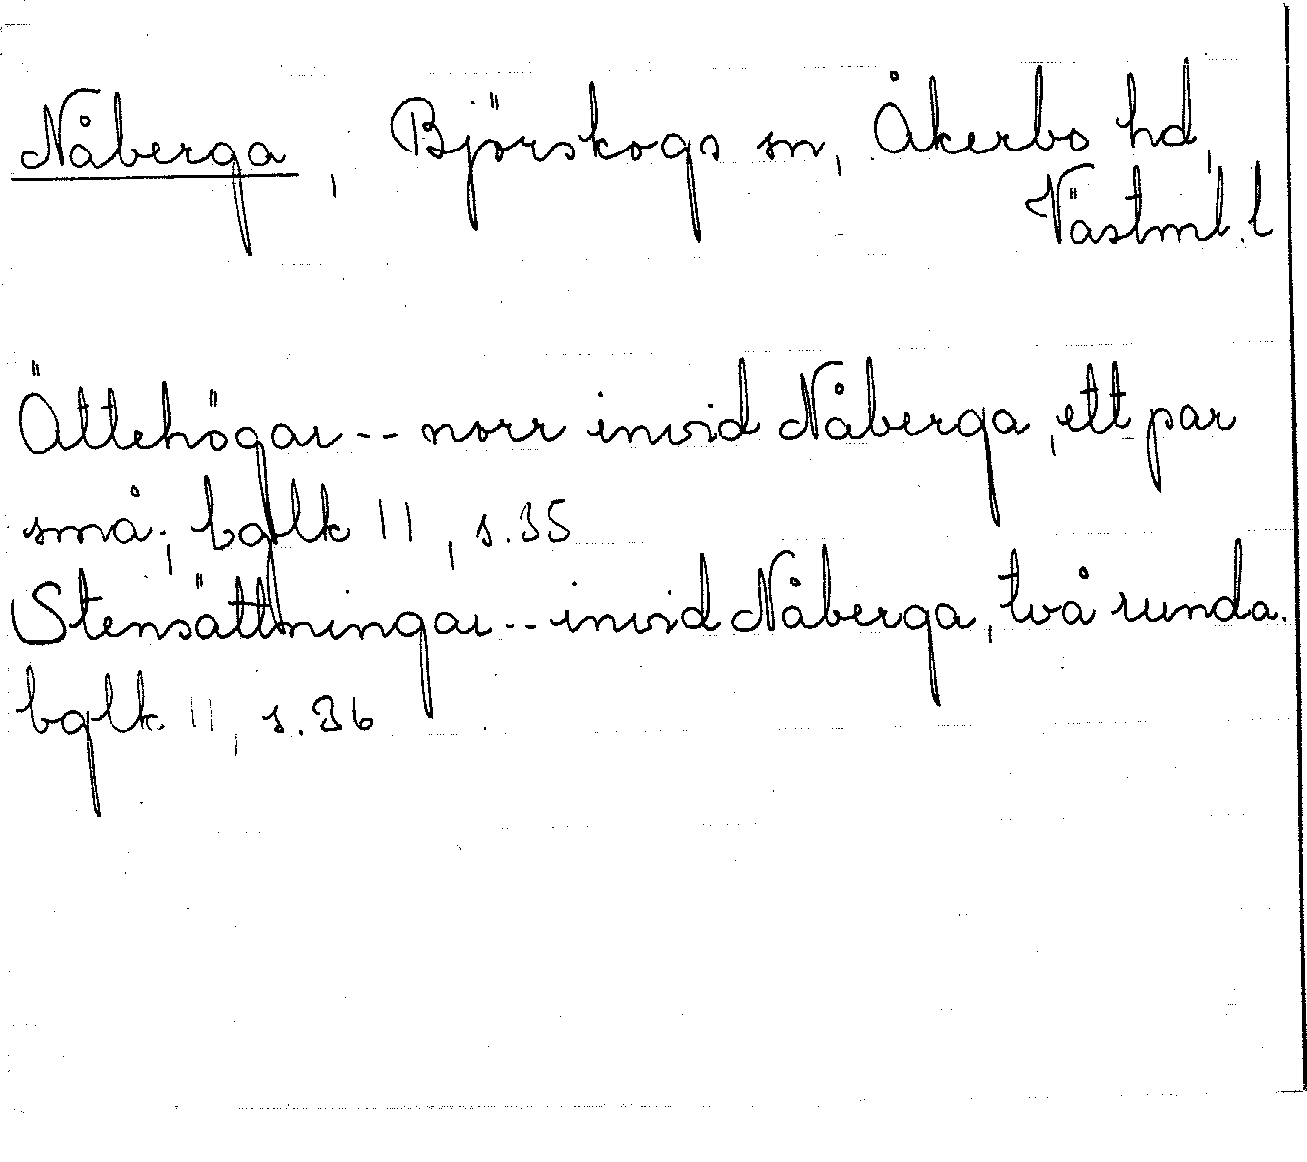 Nåberga, Björskogs sn, Åkerbo hd,
Västml. l
Ättehögar -- norr invid Nåberga, ett par
små; bglk 11, s. 35
Stensättningar -- invid Nåberga, två runda.
bglk 11, s. 36